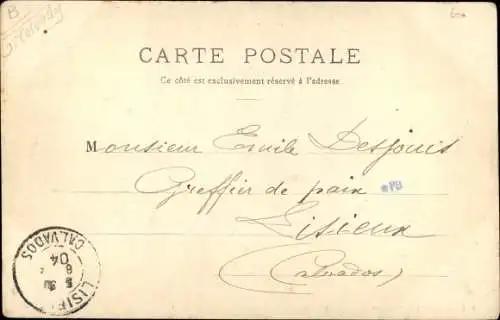 B
6.00
CARTE POSTALE
Ce côté est exclusivement réservé à l'adresse.
Monsieur Emile Desjouis
Greffier de paix
PB
Lisieux
(Calvados)
LISIEUX
5 30
8 2
04
CALVADOS